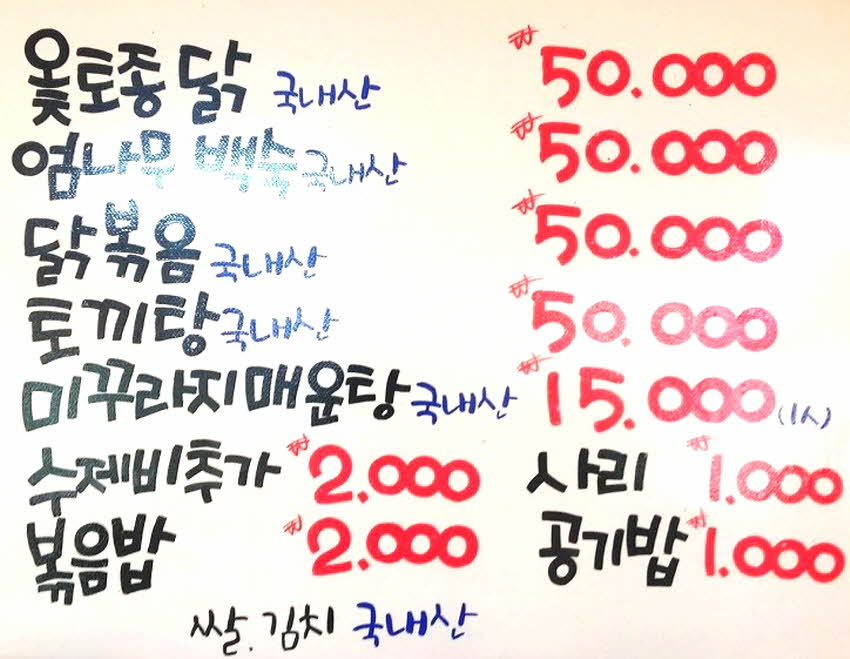 옻토종닭 국내산 ₩50.000
엄나무 백숙 국내산 ₩50.000
닭볶음 국내산 ₩50.000
토끼탕 국내산 ₩50.000
미꾸라지매운탕 국내산 ₩15.000(1人)
수제비추가 ₩2.000 사리 ₩1.000
볶음밥 ₩2.000 공기밥 ₩1.000
쌀.김치 국내산